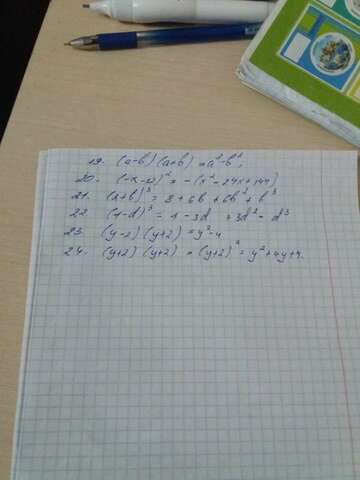 19. (a-b)(a+b) = a²-b²;
20. (-x-12)² = -(x²-24x+144)
21. (2+b)³ = 8+6b+6b²+b³
22 (1-d)³ = 1-3d+3d²-d³
23. (y-2)(y+2) = y²-4
24. (y+2)(y+2) = (y+2)² = y²+4y+4.